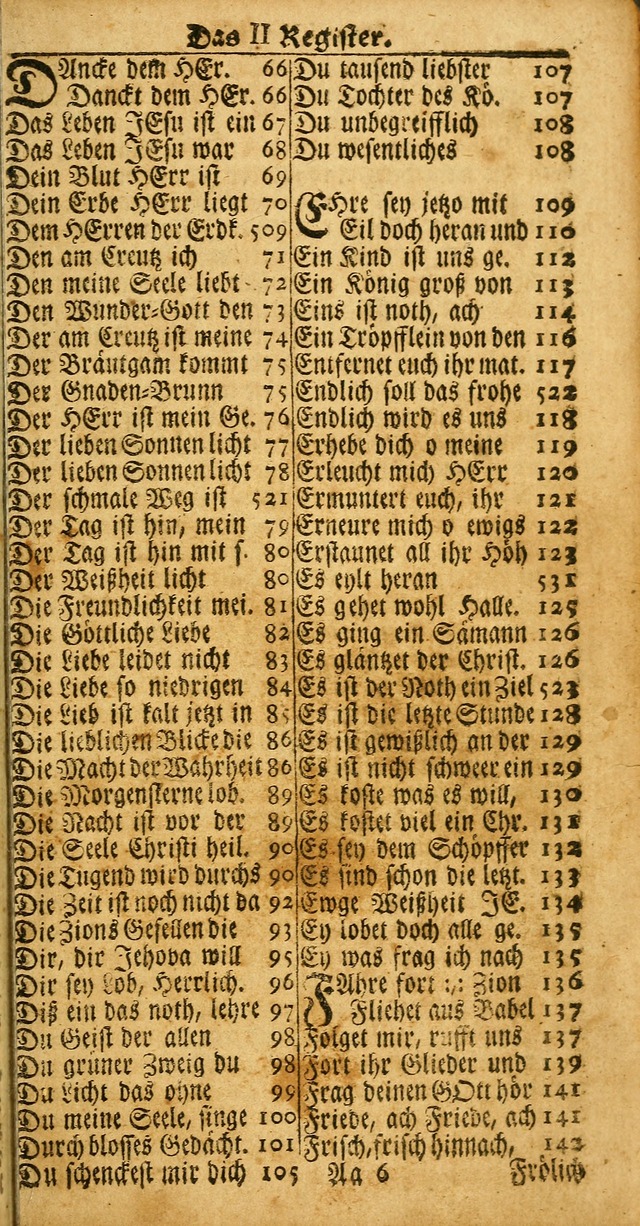 Das II Register.
DAncke dem HEr. 66
Danckt dem HEr. 66
Das Leben JEsu ist ein 67
Das Leben JEsu war 68
Dein Blut HErr ist 69
Dein Erbe HErr liegt 70
Dem HErren der Erdk. 509
Den am Creutz ich 71
Den meine Seele liebt 72
Den Wunder-Gott den 73
Der am Creutz ist meine 74
Der Bräutgam kommt 75
Der Gnaden-Brunn 75
Der HErr ist mein Ge. 76
Der lieben Sonnen licht 77
Der lieben Sonnen licht 78
Der schmale Weg ist 521
Der Tag ist hin, mein 79
Der Tag ist hin mit s. 80
Der Weißheit licht 80
Die Freundlichkeit mei. 81
Die Göttliche Liebe 82
Die Liebe leidet nicht 83
Die Liebe so niedrigen 84
Die Lieb ist kalt jetzt in 85
Die lieblichen Blicke die 86
Die Macht der Wahrheit 86
Die Morgensterne lob. 89
Die Nacht ist vor der 89
Die Seele Christi heil. 90
Die Tugend wird durchs 90
Die Zeit ist noch nicht da 92
Die Zions Gesellen die 93
Dir, dir Jehova will 95
Dir sey Lob, Herrlich. 96
Diß ein das noth, lehre 97
Du Geist der allen 98
Du grüner Zweig du 98
Du Licht das ohne 99
Du meine Seele, singe 100
Durch blosses Gedächt. 101
Du schenckest mir dich 105
Du tausend liebster 107
Du Tochter des Kö. 107
Du unbegreifflich 108
Du wesentliches 108
EHre sey jetzo mit 109
Eil doch heran und 110
Ein Kind ist uns ge. 112
Ein König groß von 113
Eins ist noth, ach 114
Ein Tröpfflein von den 116
Entfernet euch ihr mat. 117
Endlich soll das frohe 522
Endlich wird es uns 118
Erhebe dich o meine 119
Erleucht mich HErr 120
Ermuntert euch, ihr 121
Erneure mich o ewigs 122
Erstaunet all ihr Höh 123
Es eylt heran 531
Es gehet wohl Halle. 125
Es ging ein Sämann 126
Es gläntzet der Christ. 126
Es ist der Noth ein Ziel 523
Es ist die letzte Stunde 128
Es ist gewißlich an der 129
Es ist nicht schweer ein 129
Es koste was es will, 130
Es kostet viel ein Chr. 131
Es sey dem Schöpffer 132
Es sind schon die letzt. 133
Ewge Weißheit JE. 134
Ey lobet doch alle ge. 135
Ey was frag ich nach 135
FAhre fort :,: Zion 136
Fliehet aus Babel 137
Folget mir, rufft uns 137
Fort ihr Glieder und 139
Frag deinen GOtt hör 141
Friede, ach Friede, ach 141
Frisch, frisch hinnach, 142
Aa 6 Frölich